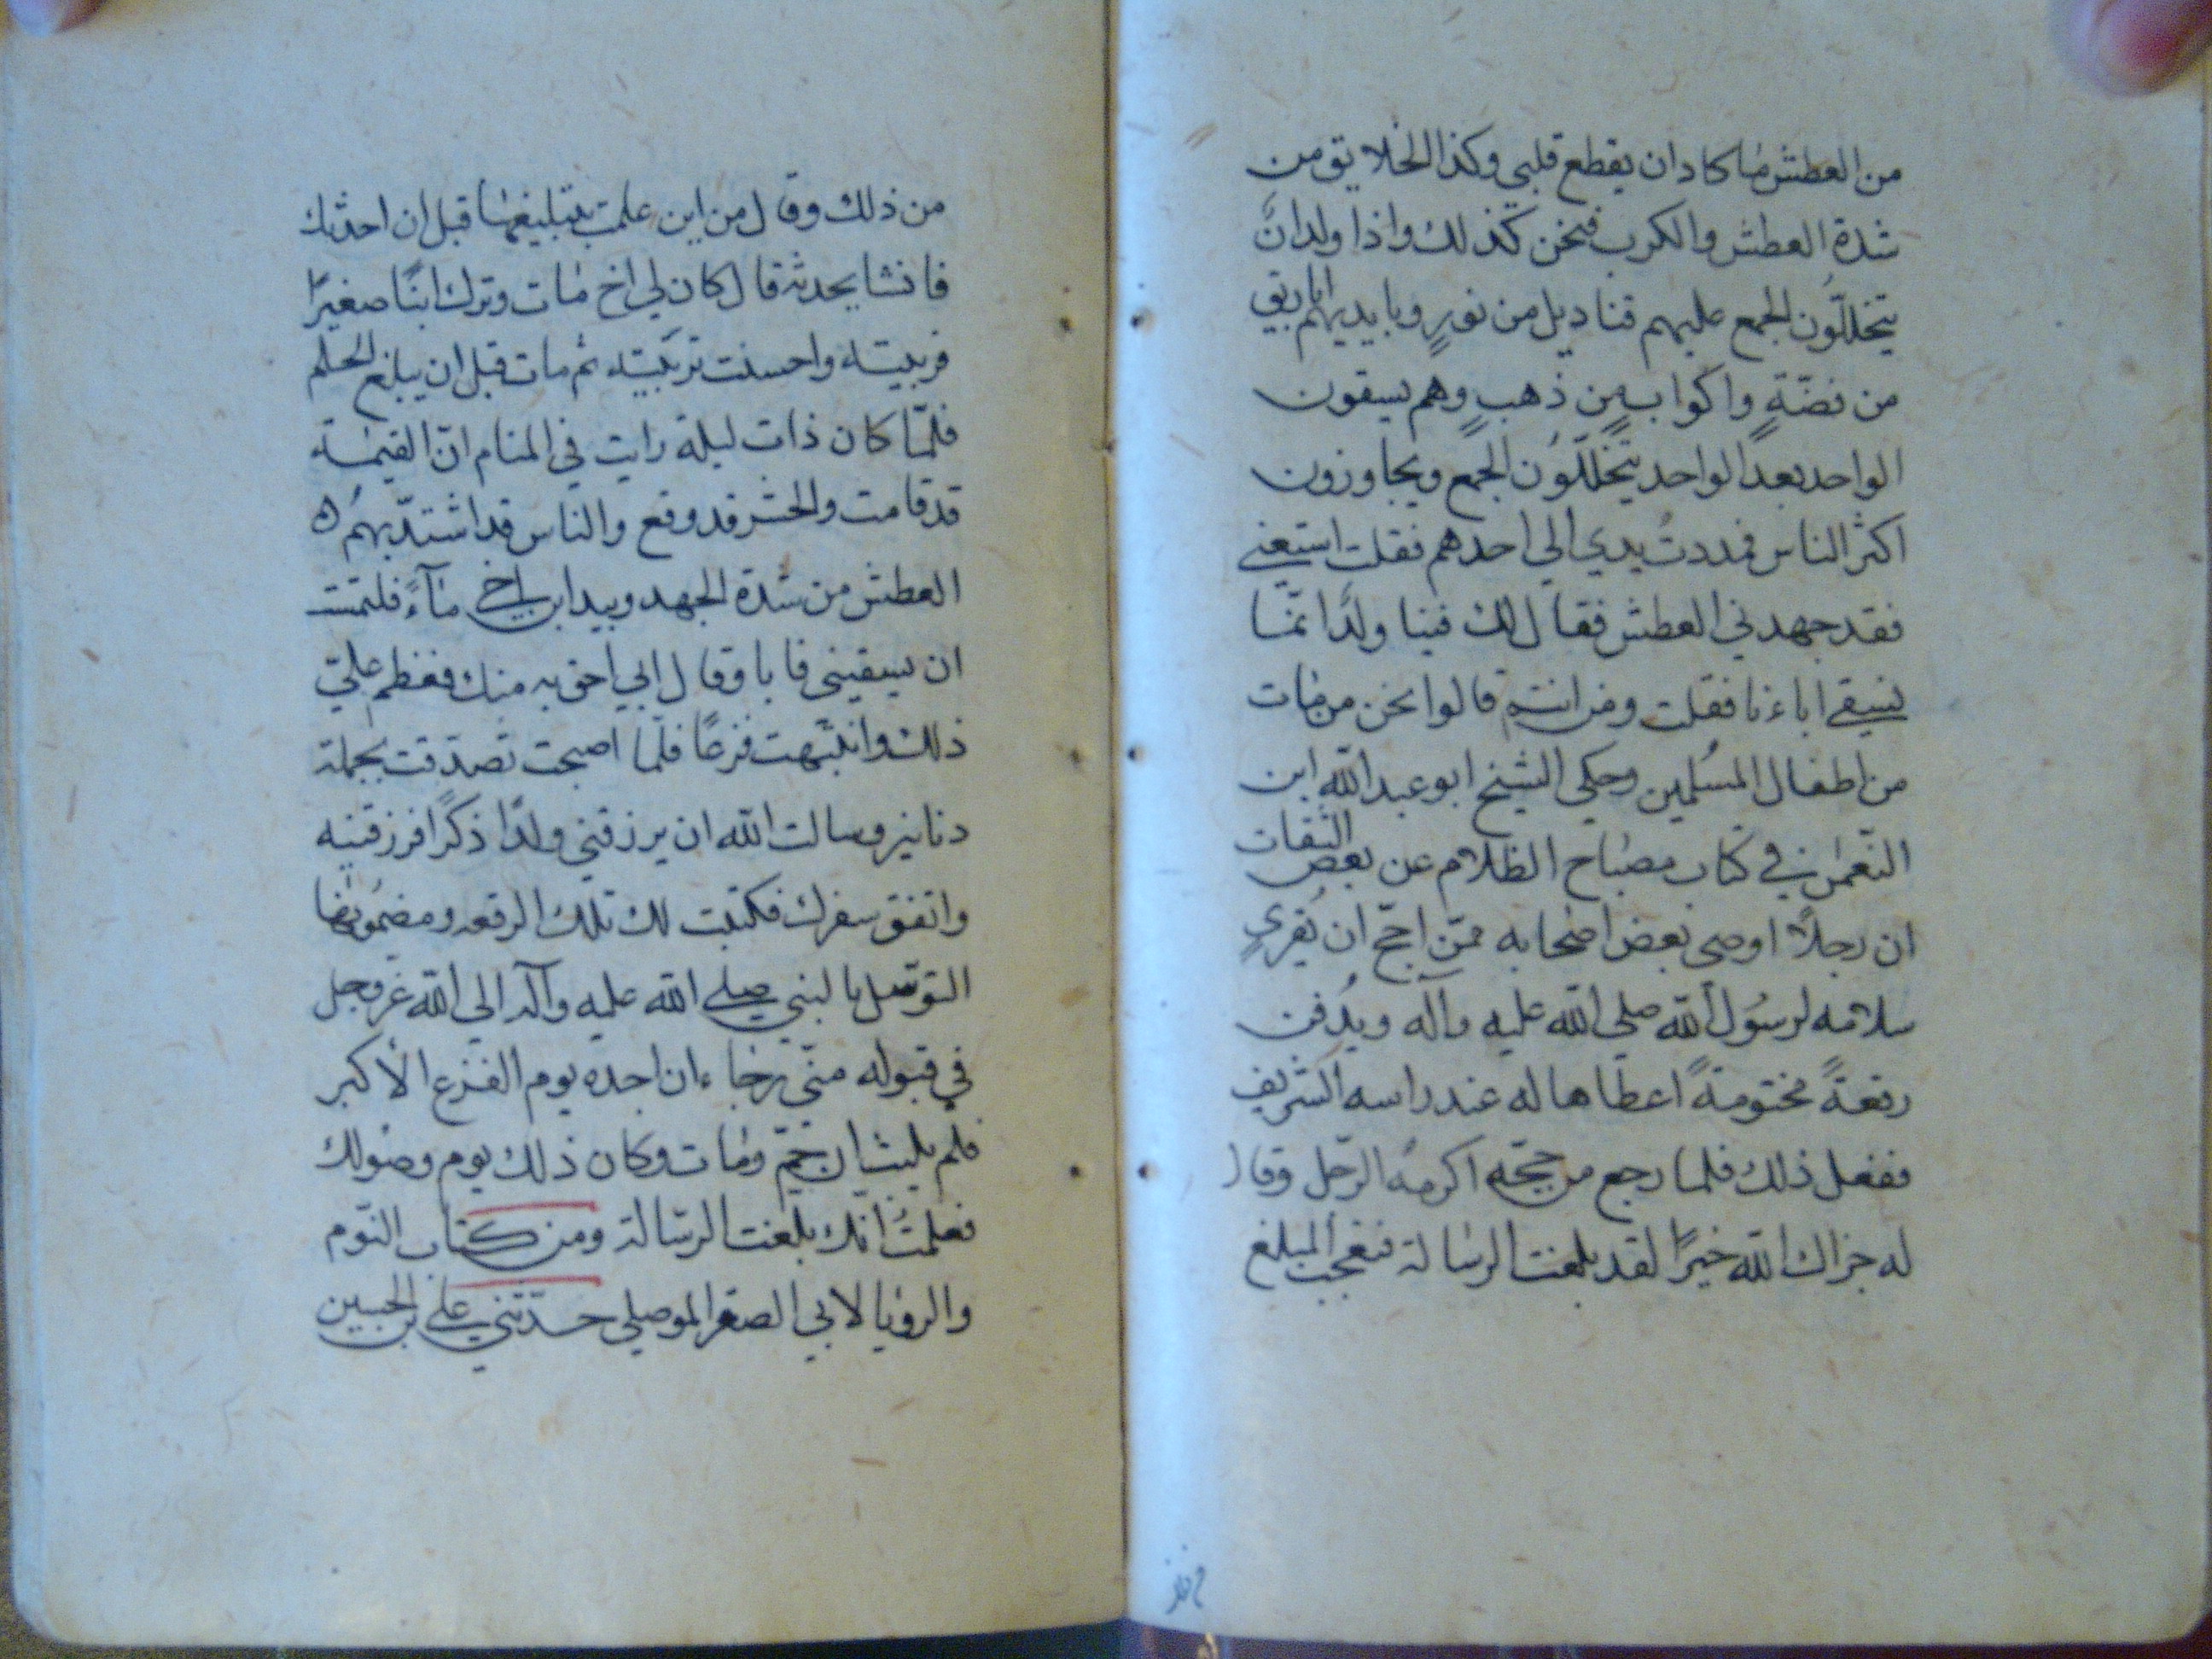 من العطش ما كاد ان يقطع قلبي وكذا الخلايق من
شدة العطش والكرب فنحن كذلك واذا ولدانٌ
يتخللّون الجمع عليهم قناديل من نورٍ وبايديهم اباريق
من فضّةٍ واكوابٍ من ذهبٍ وهم يسقون
الواحد بعد الواحد يتخلّلون الجمع ويجاوزون
اكثر الناس فمددتُ يدي الي احدهم فقلت اسقني
فقد جهدني العطش فقال لك فينا ولدًا انمّا
نسقي اباءنا فقلت ومن انتم قالوا نحن من مات
من اطفال المسُلمين وحكي الشيخ ابو عبد الله ابن
النّعمن في كتاب مصباح الظلام عن بعض الثقات
ان رجلاً اوصى بعض اصحابه ممّن احجّ ان يُقري
سلامه لرسُول الله صلي الله عليه وآله ويدُفن
رقعةً مختومةً اعطاها له عند راسه الشريف
ففعل ذلك فلما رجع من حجّه اكرمه الرّجل وقال
له جزاك الله خيرًا لقد بلغت الرسالة فتعجب المبلغ
من ذلك وقال من اين علمت بتبليغها قبل ان احدثك
فانشا يحدثه قال كان لي اخ مات وترك ابنًا صغيرًا
فربيته واحسنت تربيّته ثم مات قبل ان يبلغ الحلم
فلمّا كان ذات ليلة رايت في المنام انّ القيمة
قد قامت والحشر قد وقع والناس قد اشتدّ بهمُ
العطش من شدة الجهد وبيد ابن اخي مآءً فلتمست
ان يسقيني فابا وقال ابي احق به منك فعظم عليّ
ذلك وانتبّهت فزعًا فلمّا اصبحت تصدّقت بجملة
دنانير وسالت الله ان يرزقني ولدًا ذكرًا فرزقنيه
واتفق سفرك فكتبت لك تلك الرقعه ومضمُونها
التّوسّل بالنبي صلي الله عليه وآله الي الله عز وجل
في قبوله منّي رجاء ان اجده يوم الفزع الاكبر
فلم يلبث ان حمّ ومات وكان ذلك يوم وصولك
فعلمتُ انّك بلغت الرسالة ومن كتاب النّوم
والرؤيا لابي الصقر الموصلي حدّثني علي بن الحسين